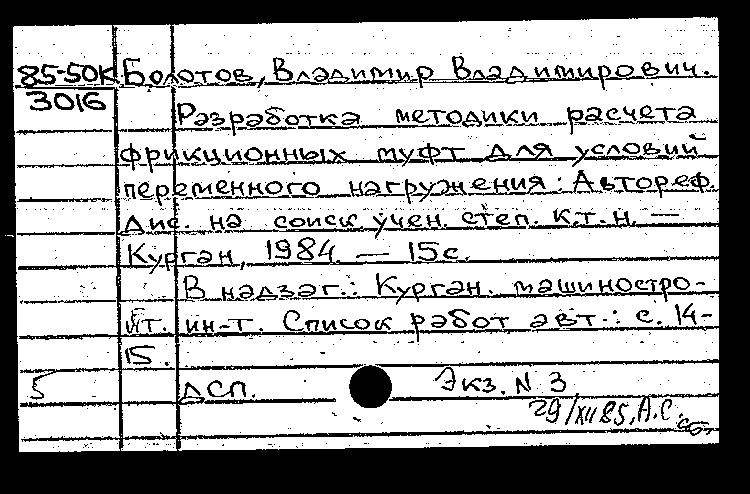 85-50К Болотов, Владимир Владимирович.
3016
Разработка методики расчета
фрикционных муфт для условий
переменного нагружения: Автореф.
Дис. на соиск учен. степ. к.т.н. —
Курган, 1984. — 15 с.
В надзаг.: Курган. машиностро-
ит. ин-т. Список работ авт.: с. 14-
15.
5 ДСП. Экз. N 3
29/XII 85, А.С.